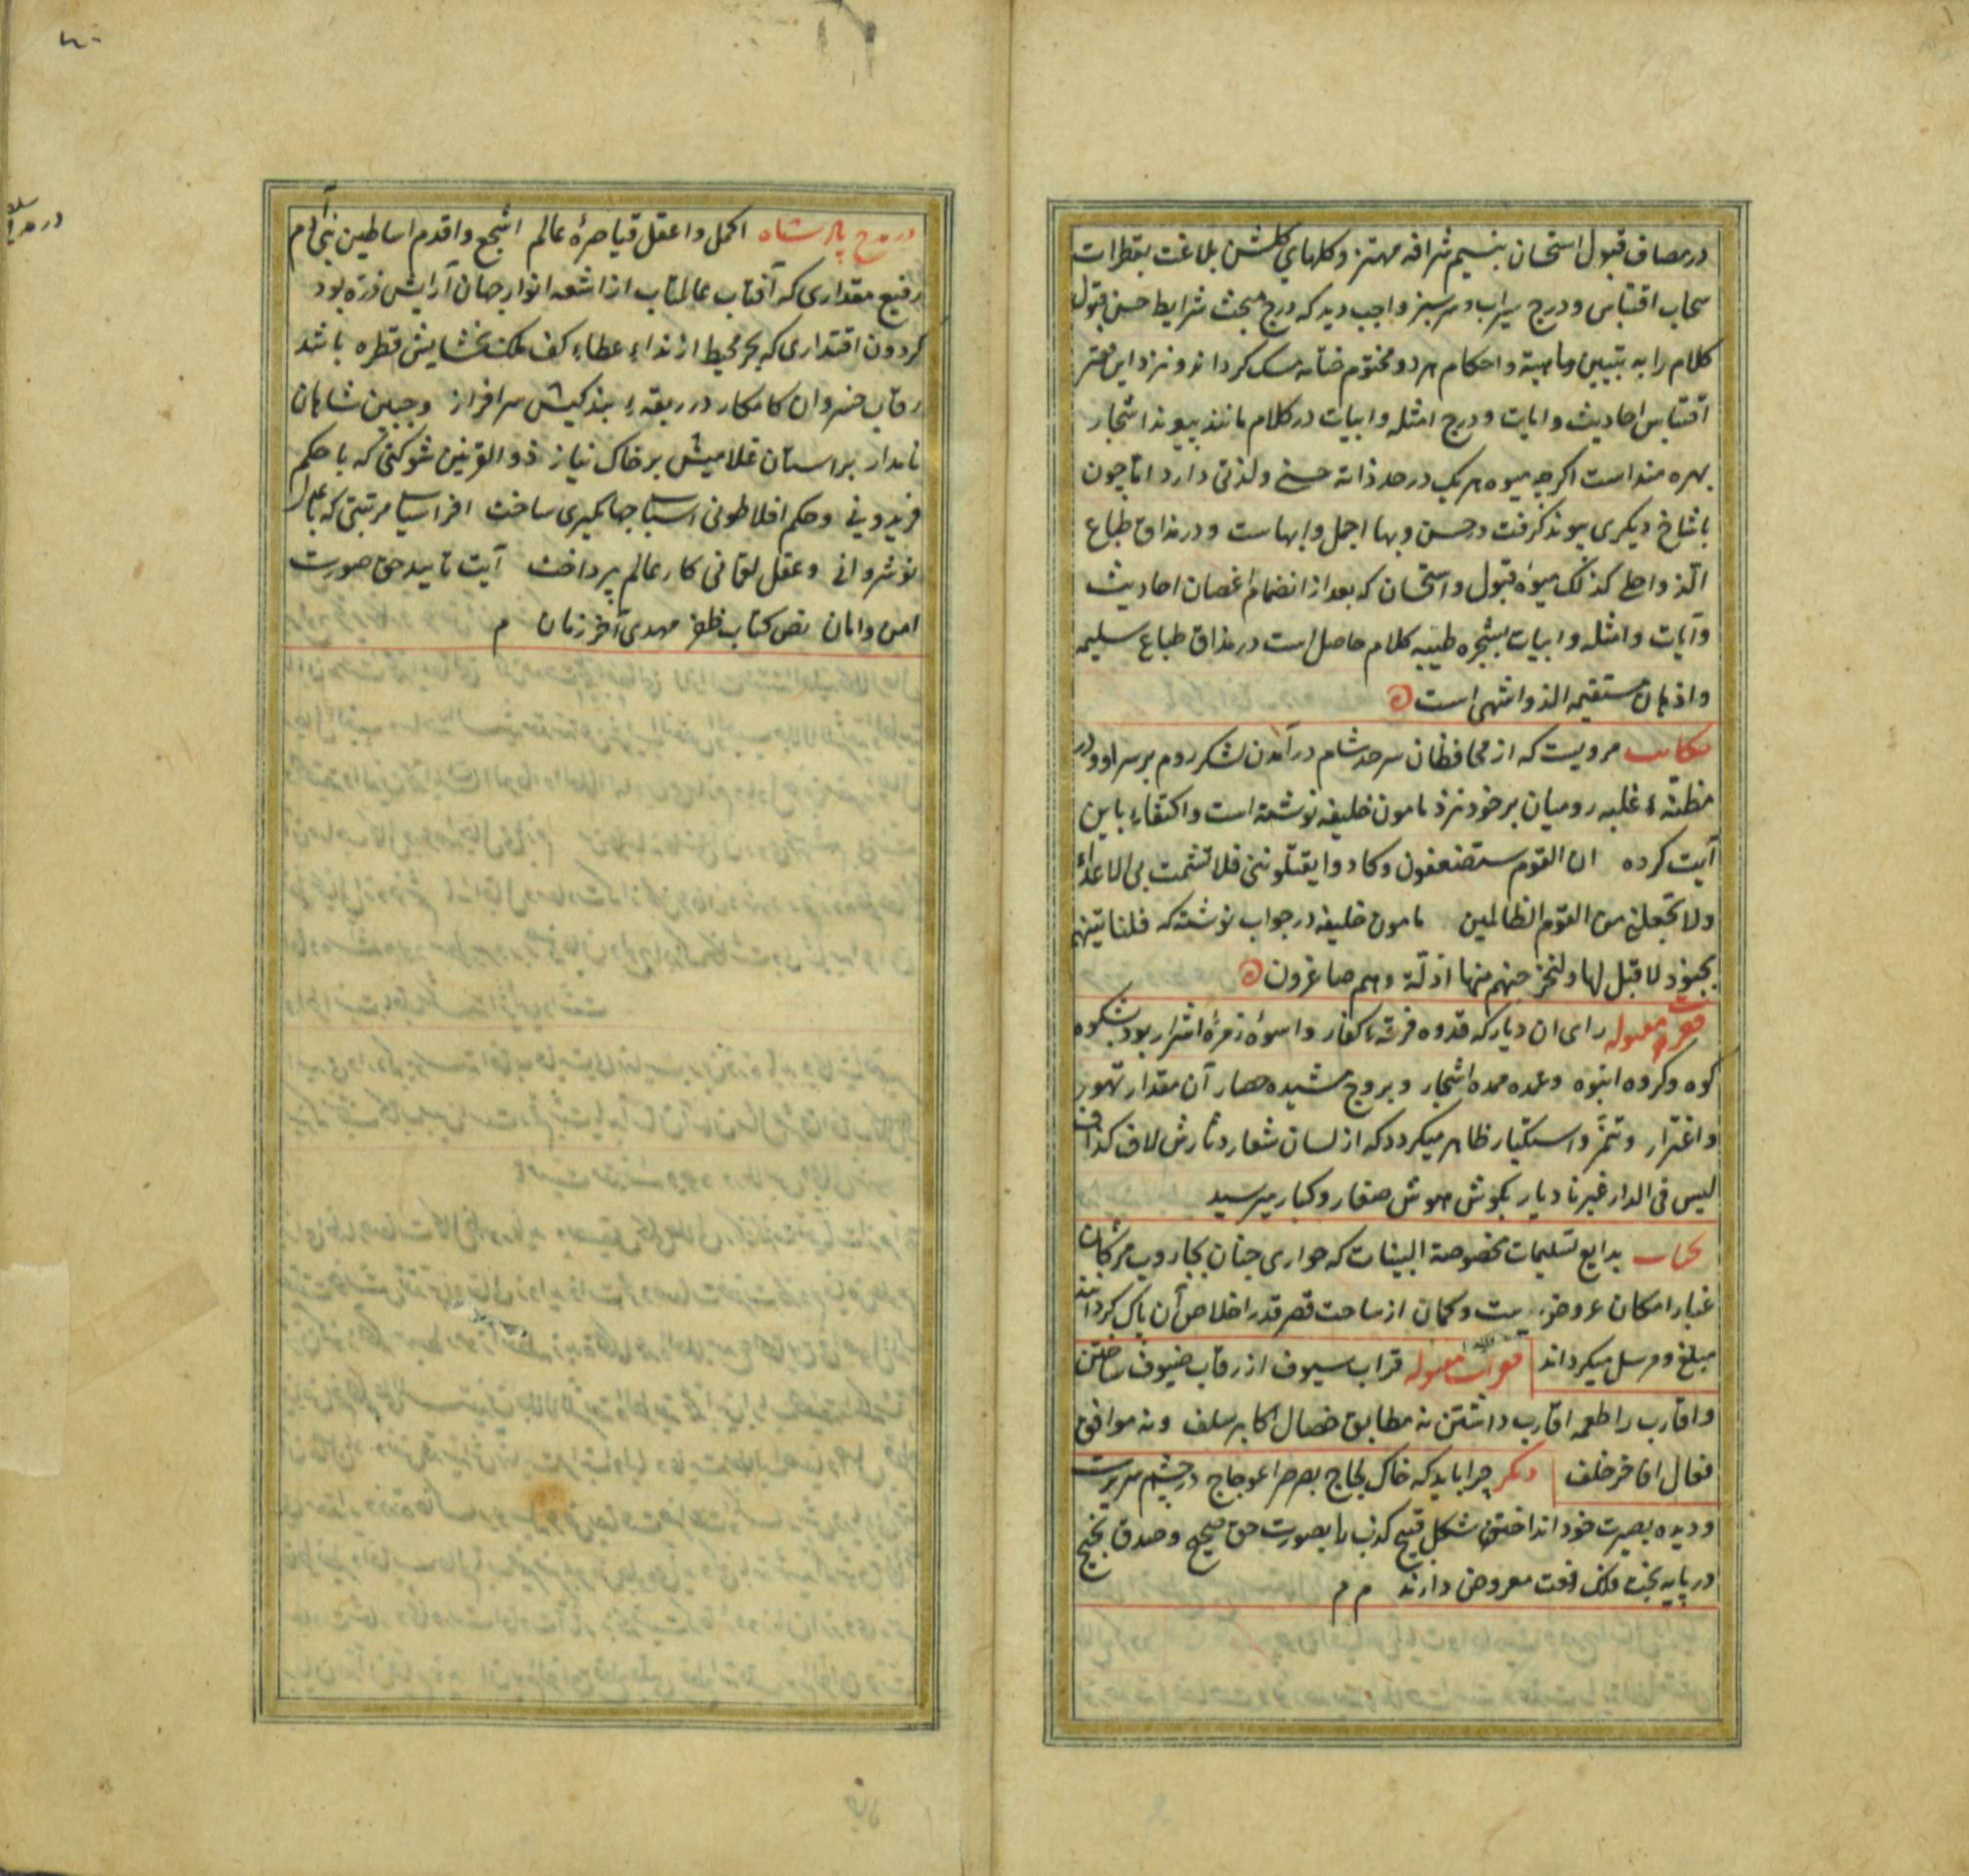 در مصاف قبول استحسان بنسیم شرافه مهتز و کلهای کلشن بلاغت بقطرات
سحاب اقتباس و درج سیراب و سرسبز واجب دید که درج مبحث شرایط حسن قبول
کلام را به تبیین ماهیة و احکام هر دو مختوم ختامه مسک کرداند و نزد این فقر
اقتباس احادیث و ایات و درج امثله و ابیات در کلام مانند پیوند اشجار
بهره منداست اکرچه میوه هر یک در حد ذاته حسنی و لذتی دارد اما چون
با شاخ دیکری پیوند کرفت در حسن و بها اجمل و ابهاست و در مذاق طباع
الذ و احلی کذلک میوۀ قبول و استحسان که بعد از انضمام اغصان احادیث
و آیات و امثله و ابیات بشجره طیبه کلام حاصل است در مذاق طباع سلیمه
و اذهان مستقیمه الذ و اشهی است
حکایت مرویست که از محافظان سرحد شام در آمدن لشکر روم بر سر او و در
مظنۀ غلبه رومیان بر خود نزد مامون خلیفه نوشته است و اکتفاء باین
آیت کرده ان القوم ستضعفون و کادوا یقتلوننی فلا تشمت بی الاعداء
ولا تجعلنی من القوم الظالمین مامون خلیفه در جواب نوشته که فلناتینهم
بجنود لا قبل لها ولنخرجنهم منها اذلة وهم صاغرون
فقرات معموله رای ان دیار که قدوه فرقۀ کفار و اسوۀ زمرۀ اشرار بود بشکوه
کوه و کروه انبوه و عمده ممده اشجار و بروج مشیده حصار آن مقدار تهور
و اغترار و تنمّر و استکبار ظاهر میکردد که از لسان شعار و دثارش لاف کذاف
لیس فی الدار غیرنا دیار بکوش هوش صغار و کبار میرسید
بدایع تسلیمات مخصوصة البینات که حواری جنان بجاروب مژکان
غبار امکان عروض ست و کمان از ساحت قصر قدر اخلاص آن پاک کردانند
مبلغ و مرسل میکرداند فقرات معموله قراب سیوف از رقاب ضیوف ساختن
و اقارب را طعمه اقارب داشتن نه مطابق خصال اکابر سلف و نه موافق
فعال افاخر خلف دیکر چرا باید که خاک لجاج بصرصر اعوجاج در چشم سریرت
و دیده بصیرت خود انداختن شکل قبیح کذب را بصورت حق صحیح و صدق نجیح
در پایه تخت فلک رفعت معروض دارند م م
در مدح پادشاه اکمل و اعقل قیاصرۀ عالم اشجع و اقدم اساطین بنی آدم
رفیع مقداری که آفتاب عالمتاب از اشعه انوار جهان آرایش ذره بود
کردون اقتداری که بحر محیط از نداء عطاء کف ملک بخشایش قطره باشد
رقاب خسروان کامکار در ربقۀ بندکیش سرافراز و جبین شاهان
نامدار بر استان غلامیش بر خاک نیاز ذوالقرنین شوکتی که با حکم
فریدونی و حکم افلاطونی اسباب جهانکیری ساخت افراسیاب مرتبتی که با عدل
نوشروانی و عقل لقمانی کار عالم پرداخت آیت تایید حق صورت
امن و امان نص کتاب ظفر مهدی آخر زمان م